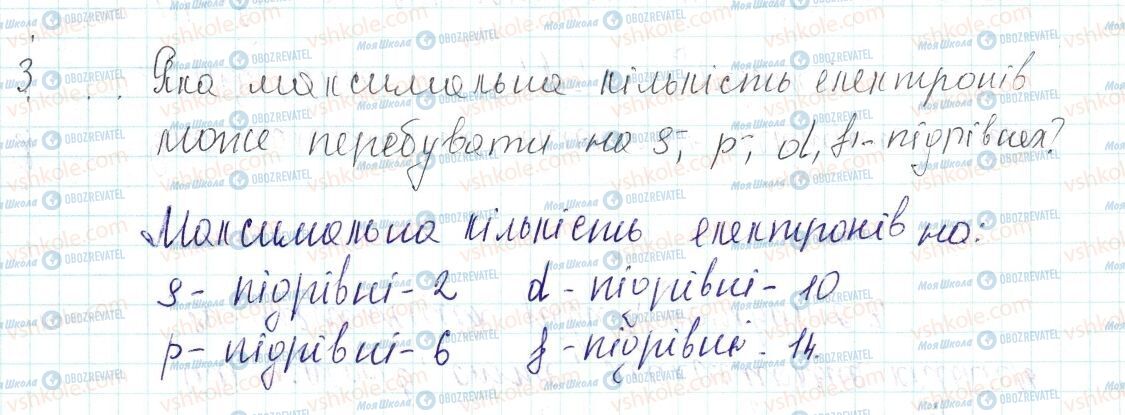 3. Яка максимальна кількість електронів
може перебувати на s-, p-, d-, f-підрівнях?
Максимальна кількість електронів на:
s - підрівні - 2 d - підрівні - 10
p - підрівні - 6 f - підрівні - 14.